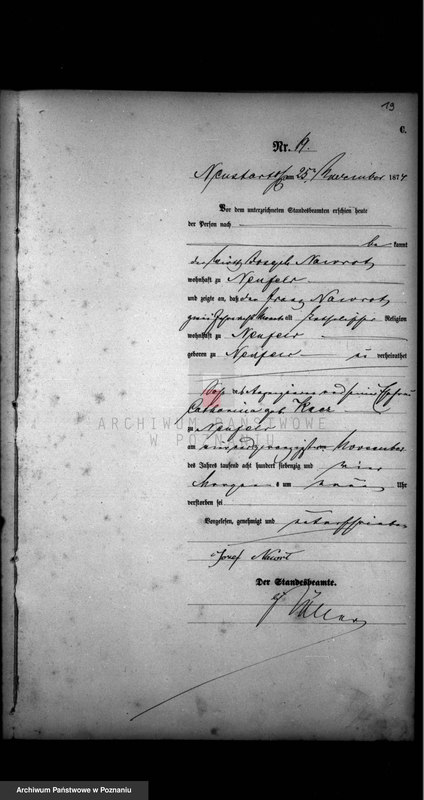 19
C.
Nr. 19.
Neustadt am 25. November 1874
Vor dem unterzeichneten Standesbeamten erschien heute
der Person nach
be kannt
der Wirth Joseph Nawrot
wohnhaft zu Neufeld
und zeigte an, daß der Franz Nawrot
alt katholischer Religion
wohnhaft zu Neufeld
geboren zu Neufeld un verheirathet
Sohn des
Catharina geb.
ARCHIWUM PAŃSTWOWE
W POZNANIU
zu Neufeld
am November
des Jahres tausend acht hundert siebenzig und vier
Morgens um neun Uhr
verstorben sei
Vorgelesen, genehmigt und unterschrieben
Josef Nawrot
Der Standesbeamte.
Archiwum Państwowe w Poznaniu